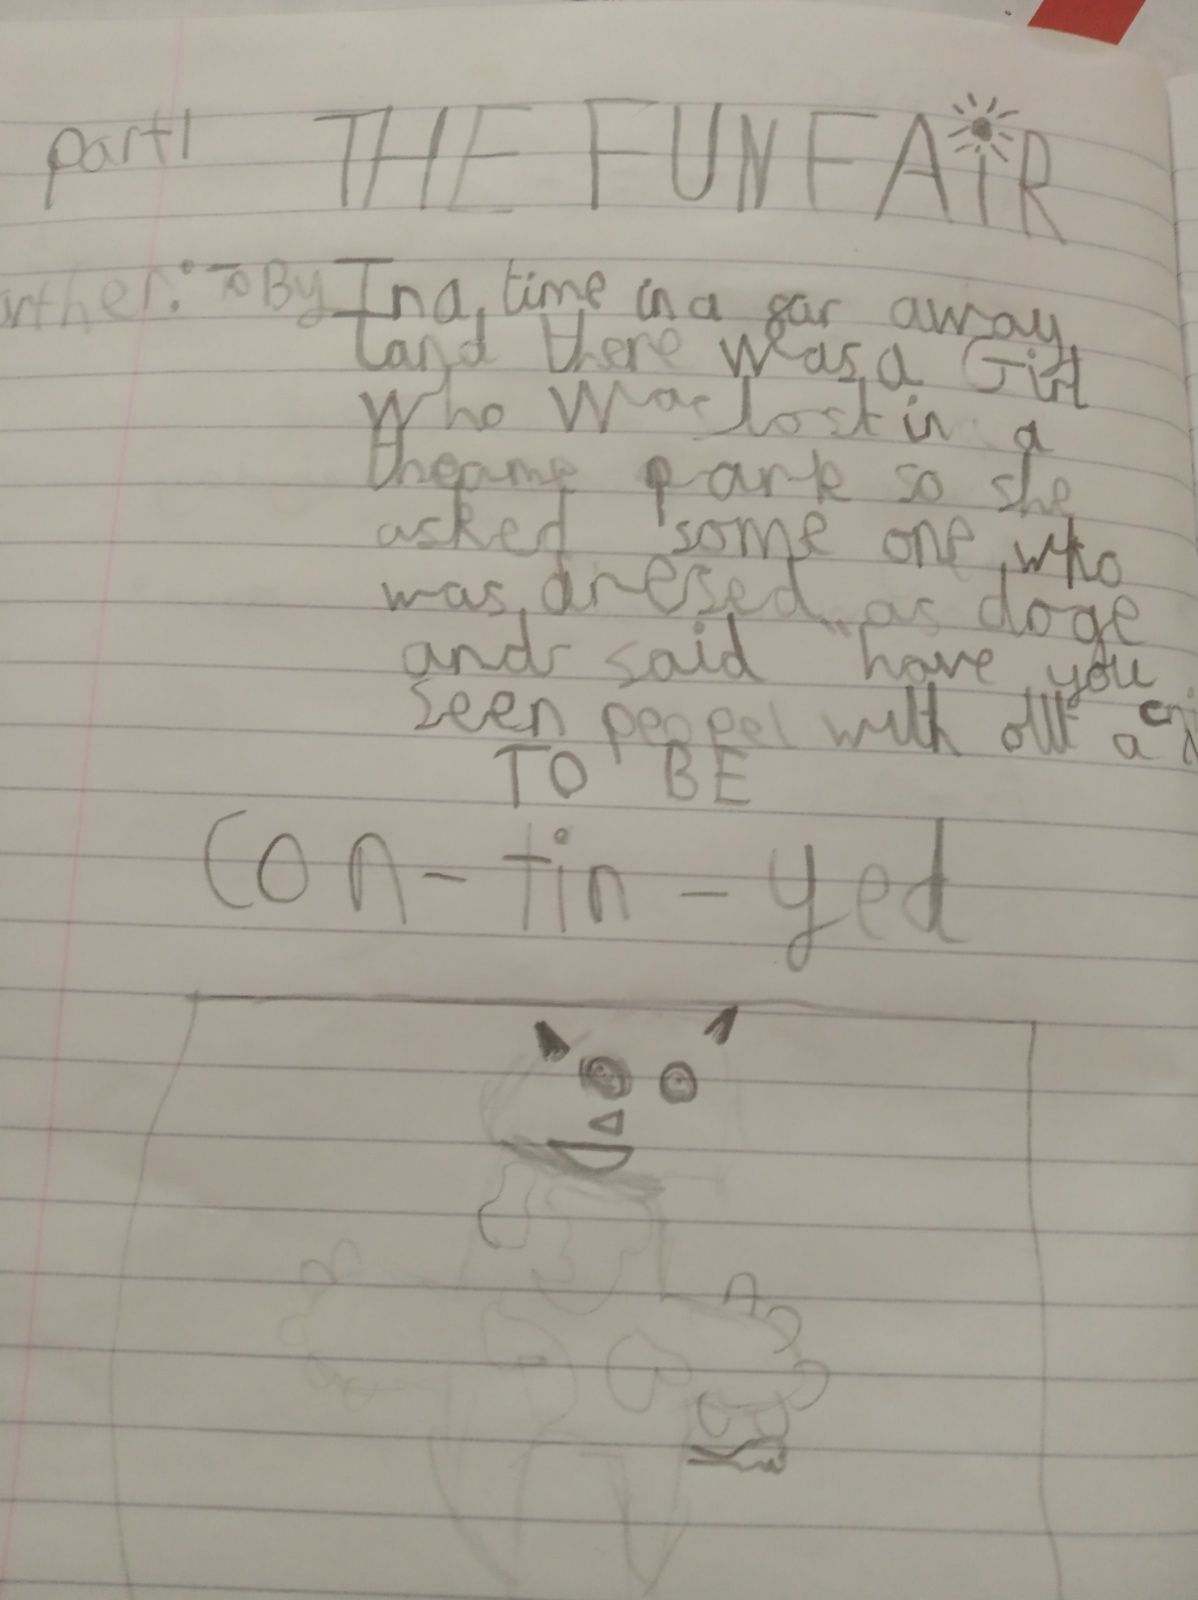 part 1 THE FUNFAiR
arther: To By In a time in a gar away
land there was a Girl
who was lost in a
theame park so she
asked some one who
was dresed as doge
and said "have you
seen peopel with out a
TO BE
Con-tin-yed